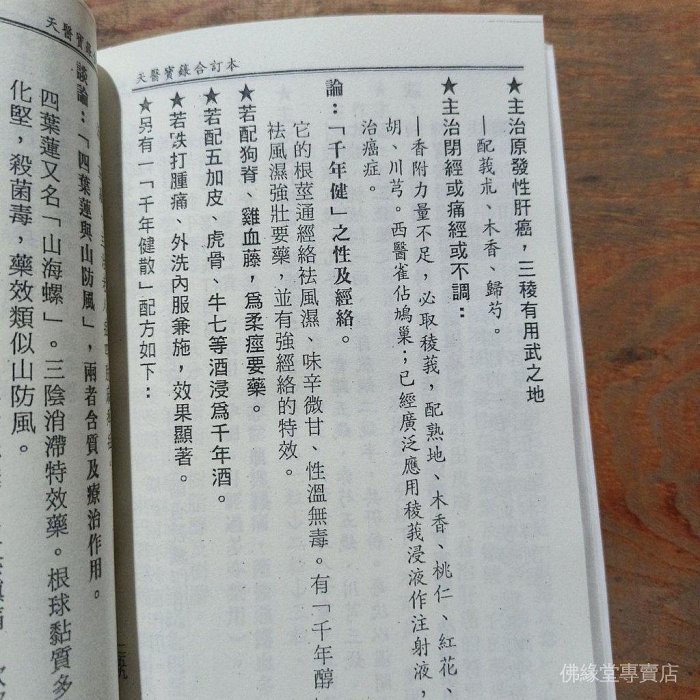 天醫寳錄合訂本
★主治原發性肝癌，三稜有用武之地
—配莪朮、木香、歸芍。
★主治閉經或痛經或不調：
—香附力量不足，必取稜莪，配熟地、木香、桃仁、紅花、
胡、川芎。西醫雀佔鳩巢；已經廣泛應用稜莪浸液作注射液，
治癌症。
論：「千年健」之性及經絡。
它的根莖通經絡袪風濕、味辛微甘、性溫無毒。有「千年醇
袪風濕強壯要藥，並有強經絡的特效。
★若配狗脊、雞血藤，爲柔痙要藥。
★若配五加皮、虎骨、牛七等酒浸爲千年酒。
★若跌打腫痛、外洗內服兼施，效果顯著。
★另有一「千年健散」配方如下：
天醫寳錄
談論：「四葉蓮與山防風」，兩者含質及療治作用。
四葉蓮又名「山海螺」。三陰消滯特效藥。根球黏質多
化堅，殺菌毒，藥效類似山防風。
佛緣堂專賣店